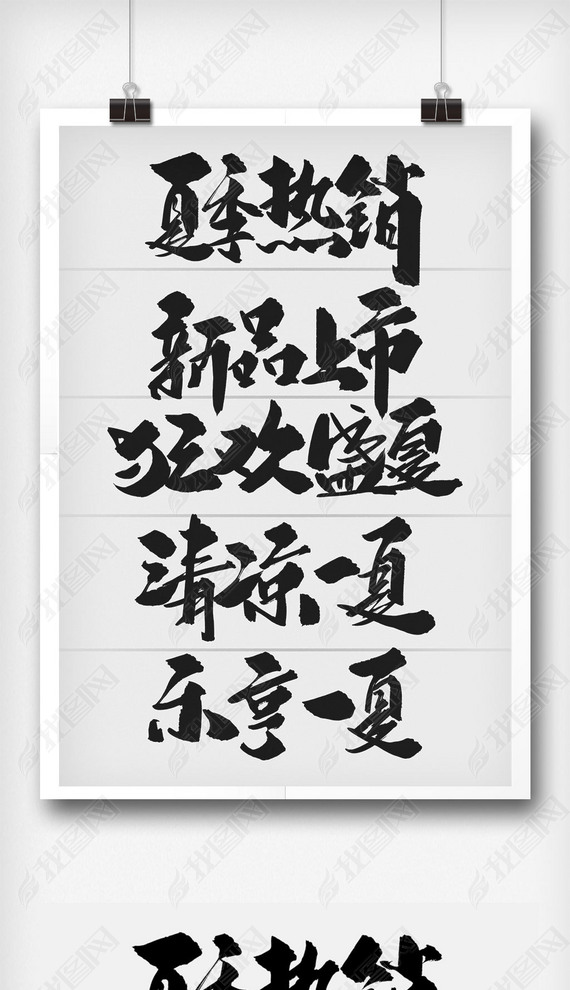 夏季热销
新品上市
狂欢盛夏
清凉一夏
乐享一夏
夏季热销